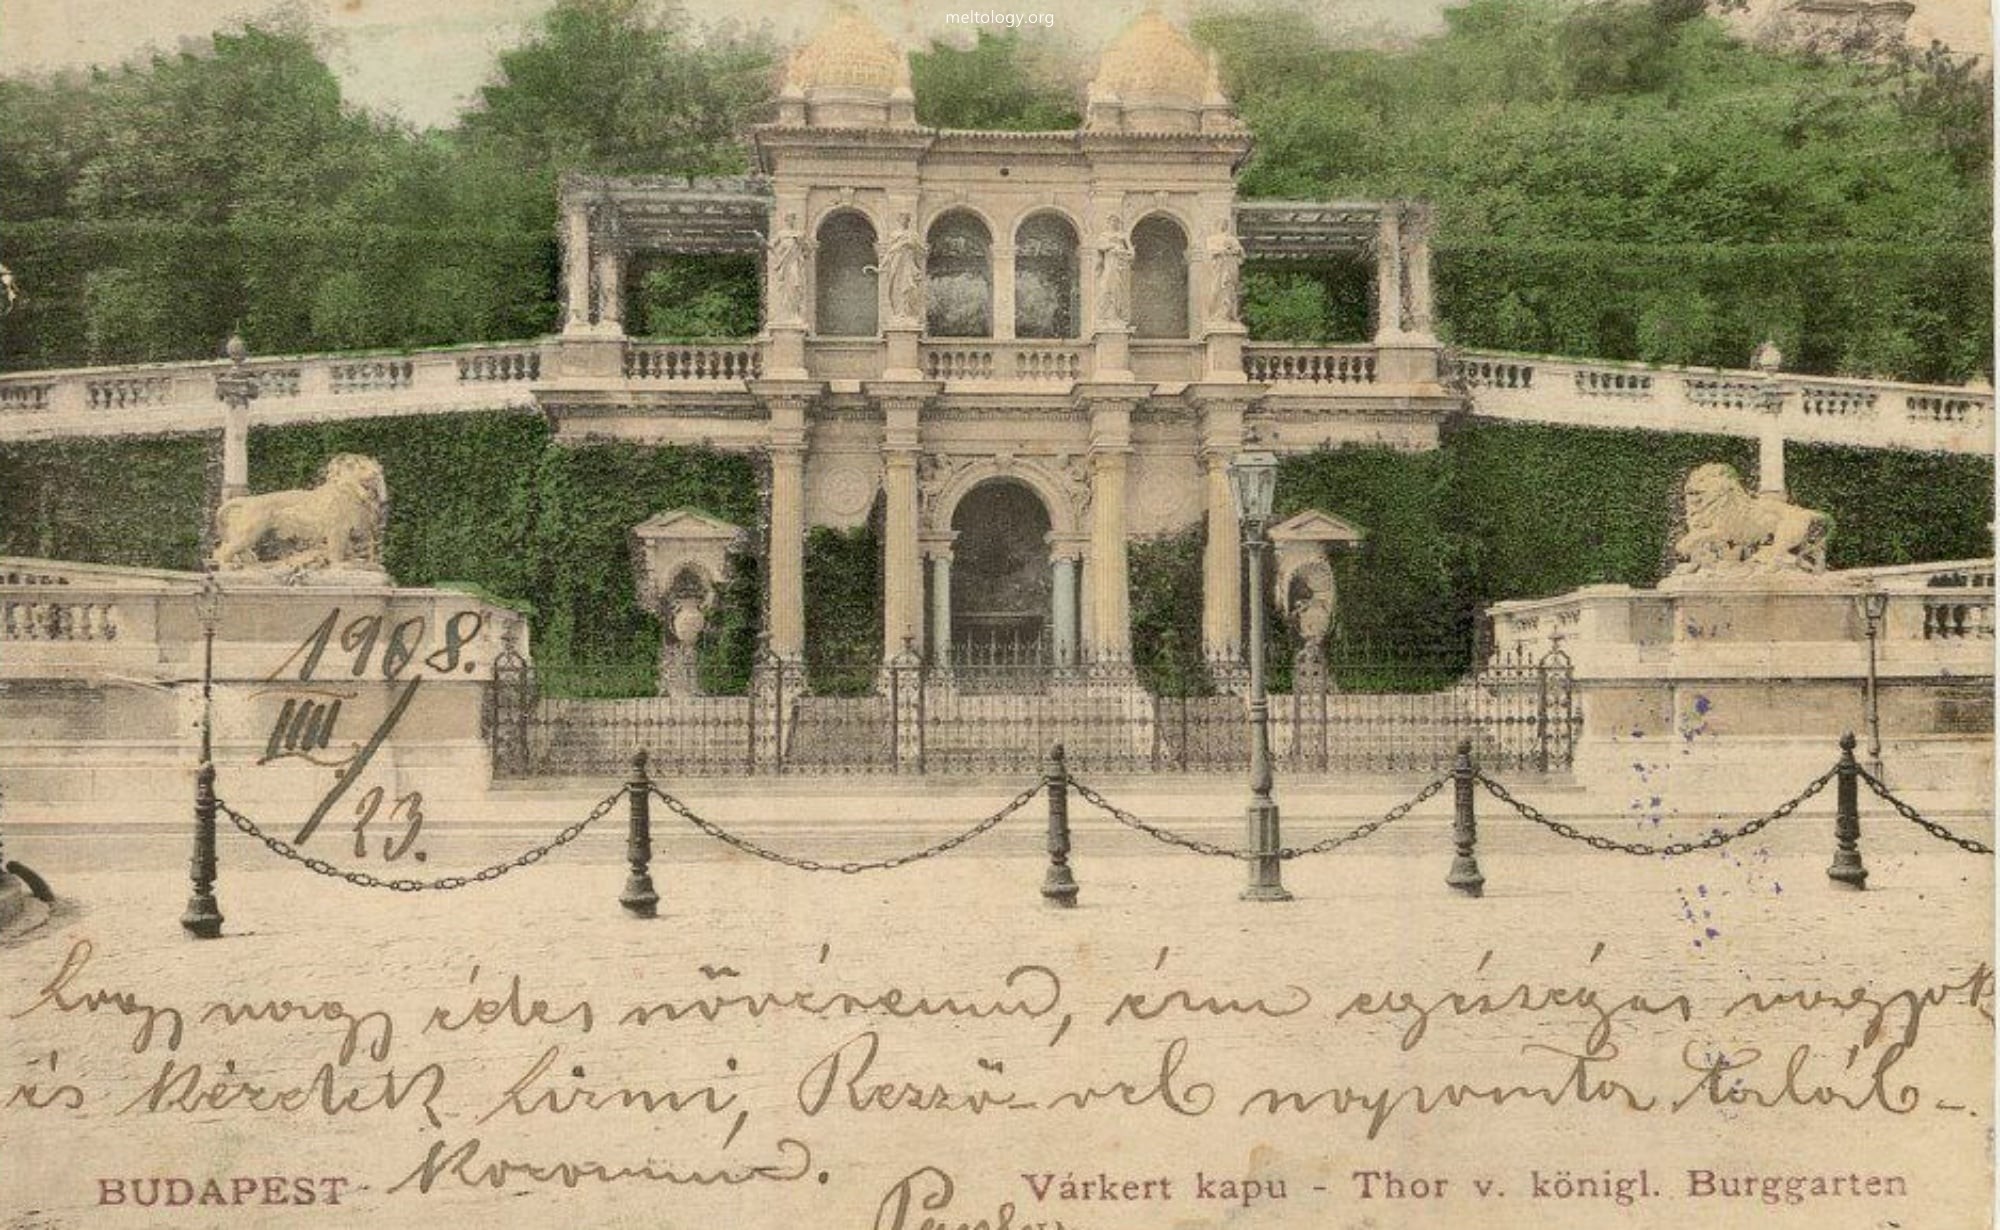 meltology.org
1908.
III/
23.
hogy vagy édes nővérem, én egészséges vagyok
és kérdek írni, Rezső-vel naponta talál-
kozom.
BUDAPEST - Várkert kapu - Thor v. königl. Burggarten